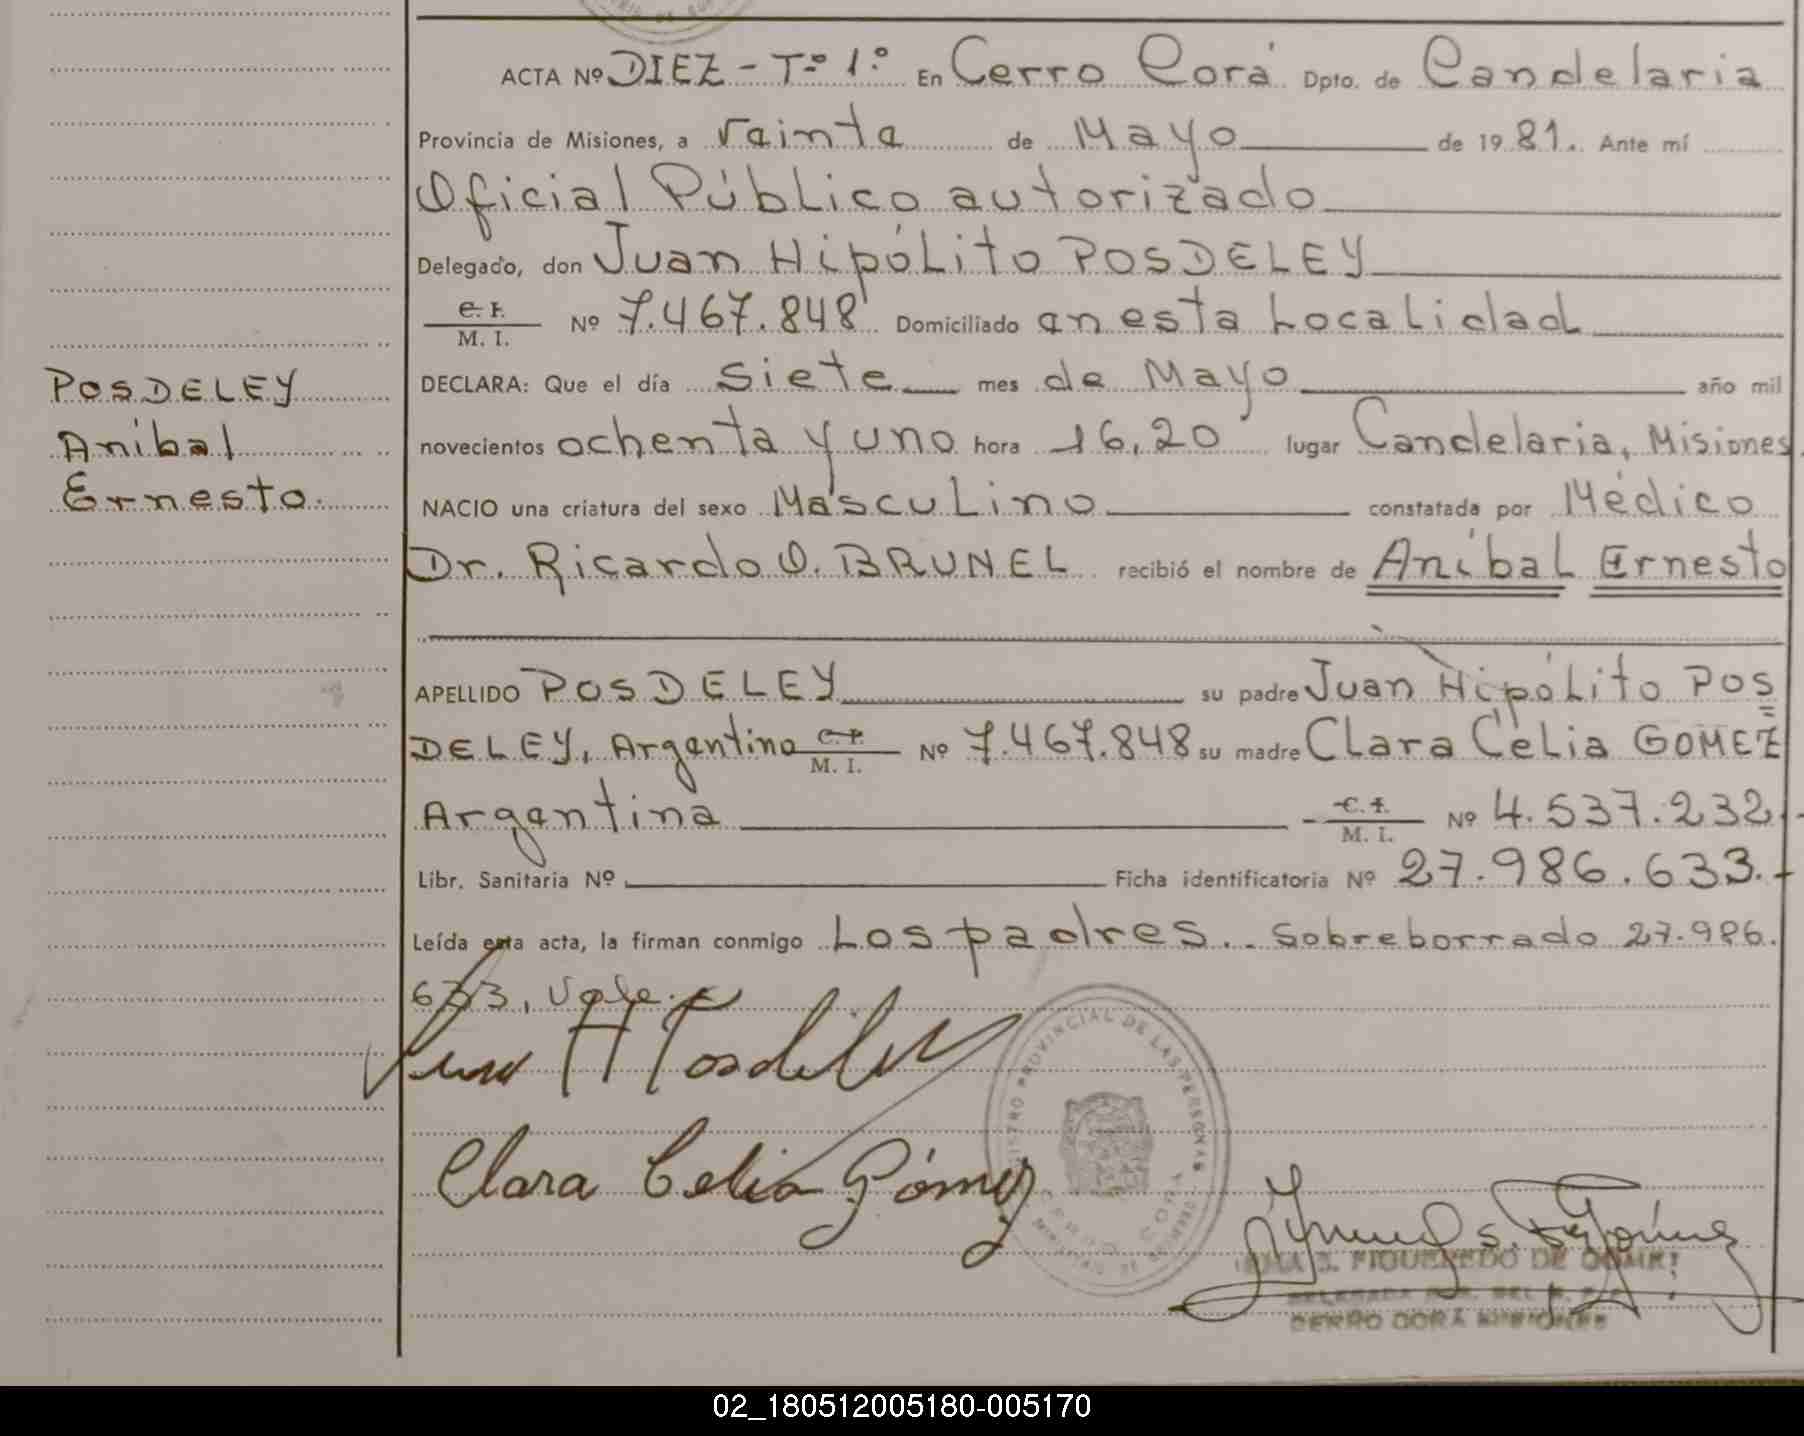 ACTA Nº DIEZ - Tº 1º En Cerro Corá Dpto. de Candelaria
Provincia de Misiones, a vainta de Mayo de 1981. Ante mí
Oficial Público autorizado
Delegado, don Juan Hipólito POSDELEY
C. I.
M. I. Nº 7.467.848 Domiciliado an esta Localidad
DECLARA: Que el día Siete mes de Mayo año mil
novecientos ochenta y uno hora 16,20 lugar Candelaria, Misiones
NACIO una criatura del sexo Masculino constatada por Médico
Dr. Ricardo O. BRUNEL recibió el nombre de Aníbal Ernesto
APELLIDO POSDELEY su padre Juan Hipólito POS
DELEY, Argentino C. I. M. I. Nº 7.467.848 su madre Clara Celia GOMEZ
Argentina C. I. M. I. Nº 4.537.232.-
Libr. Sanitaria Nº Ficha identificatoria Nº 27.986.633.-
Leída esta acta, la firman conmigo Los padres.. Sobreborrado 27.986.
633, Vale.-
POSDELEY
Aníbal
Ernesto.
Clara Celia Gómez
REGISTRO PROVINCIAL DE LAS PERSONAS
CERRO CORA
S. FIGUEREDO DE GOMEZ
CERRO CORÁ MISIONES
02_180512005180-005170